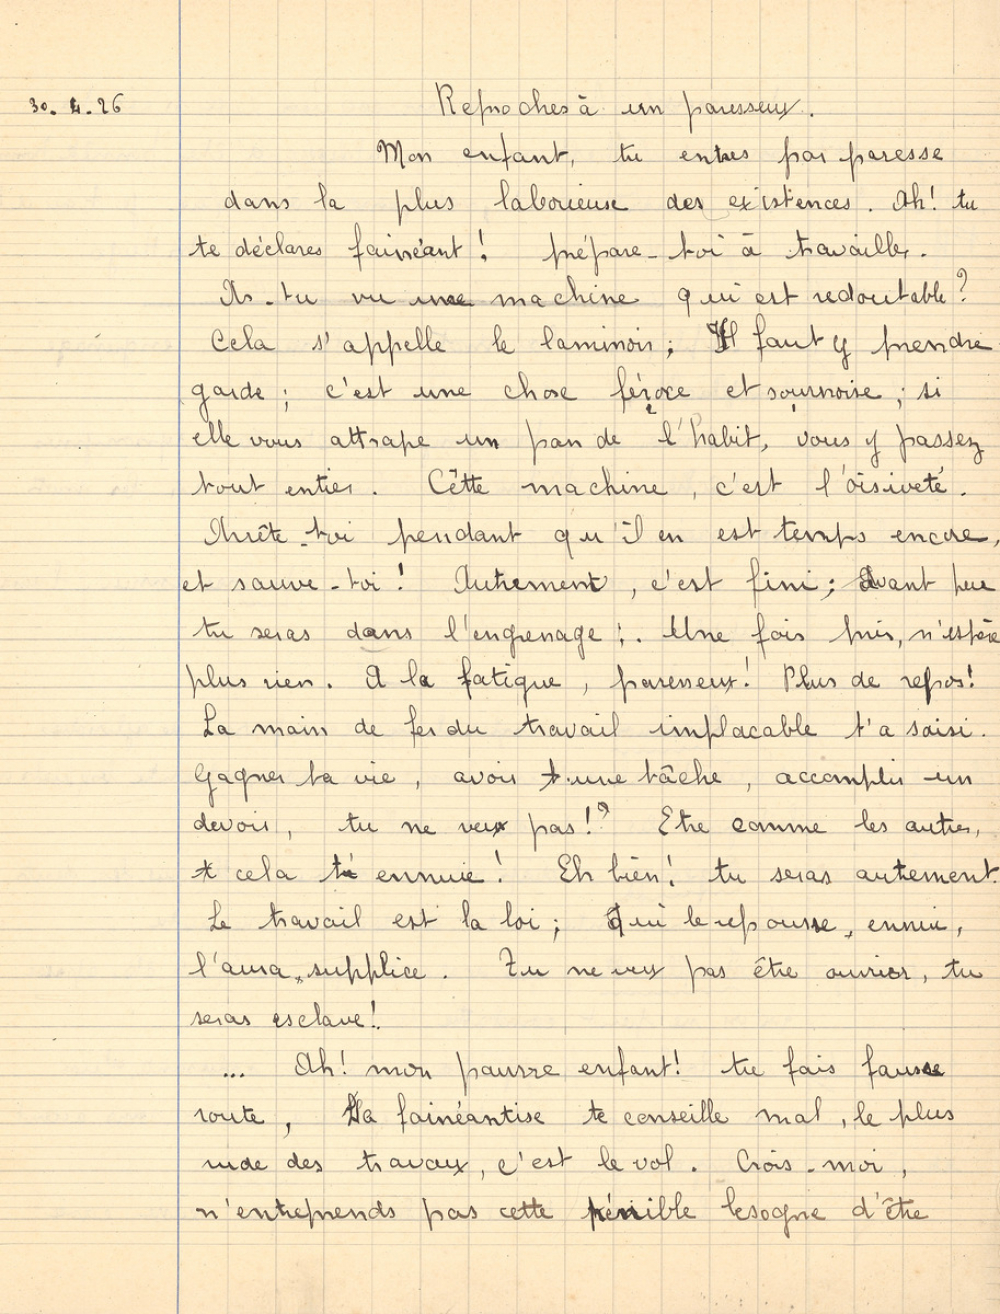 30. 4. 26
Reproches à un paresseux.
Mon enfant, tu entres par paresse
dans la plus laborieuse des existences. Ah! tu
te déclares fainéant! prépare-toi à travailler.
As-tu vu une machine qui est redoutable?
Cela s'appelle le laminoir; Il faut y prendre
garde; c'est une chose féroce et sournoise; si
elle vous attrape un pan de l'habit, vous y passez
tout entier. Cette machine, c'est l'oisiveté.
Arrête-toi pendant qu'il en est temps encore,
et sauve-toi! Autrement, c'est fini; avant peu
tu seras dans l'engrenage;. Une fois pris, n'espère
plus rien. A la fatigue, paresseux! Plus de repos!
La main de fer du travail implacable t'a saisi.
Gagner ta vie, avoir une tâche, accomplir un
devoir, tu ne veux pas!? Etre comme les autres,
cela t'ennuie! Eh bien! tu seras autrement.
Le travail est la loi; Qui le repousse, ennui,
l'aura, supplice. Tu ne veux pas être ouvrier, tu
seras esclave!
... Ah! mon pauvre enfant! tu fais fausse
route, La fainéantise te conseille mal, le plus
rude des travaux, c'est le vol. Crois-moi,
n'entreprends pas cette pénible besogne d'être